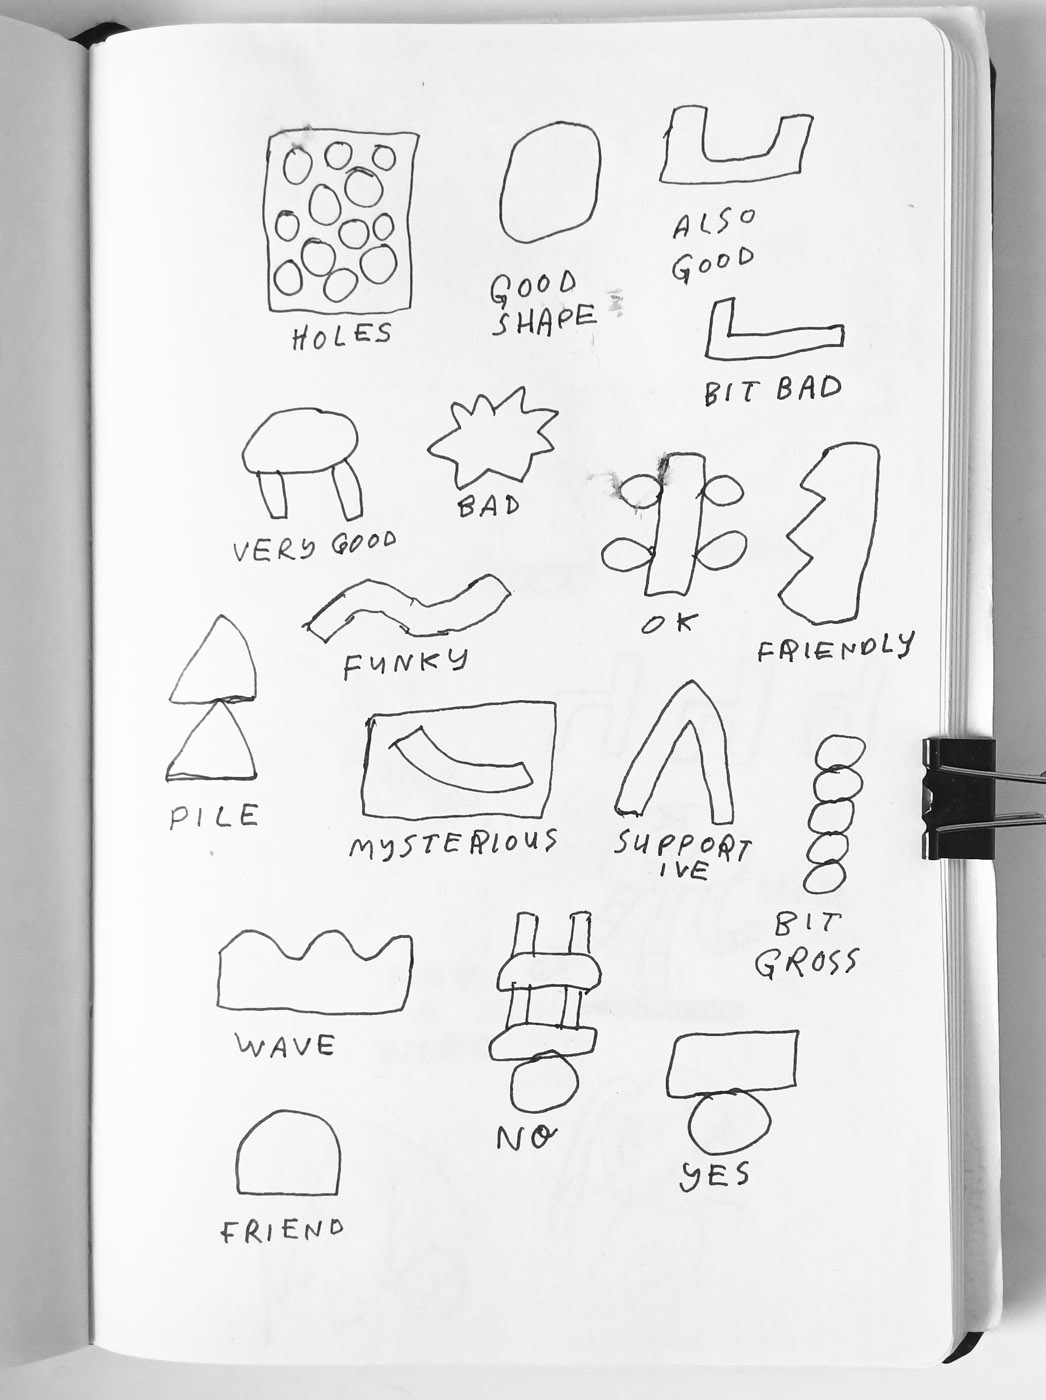 HOLES
GOOD
SHAPE
ALSO
GOOD
BIT BAD
VERY GOOD
BAD
OK
FRIENDLY
FUNKY
PILE
MYSTERIOUS
SUPPORT
IVE
BIT
GROSS
WAVE
NO
YES
FRIEND